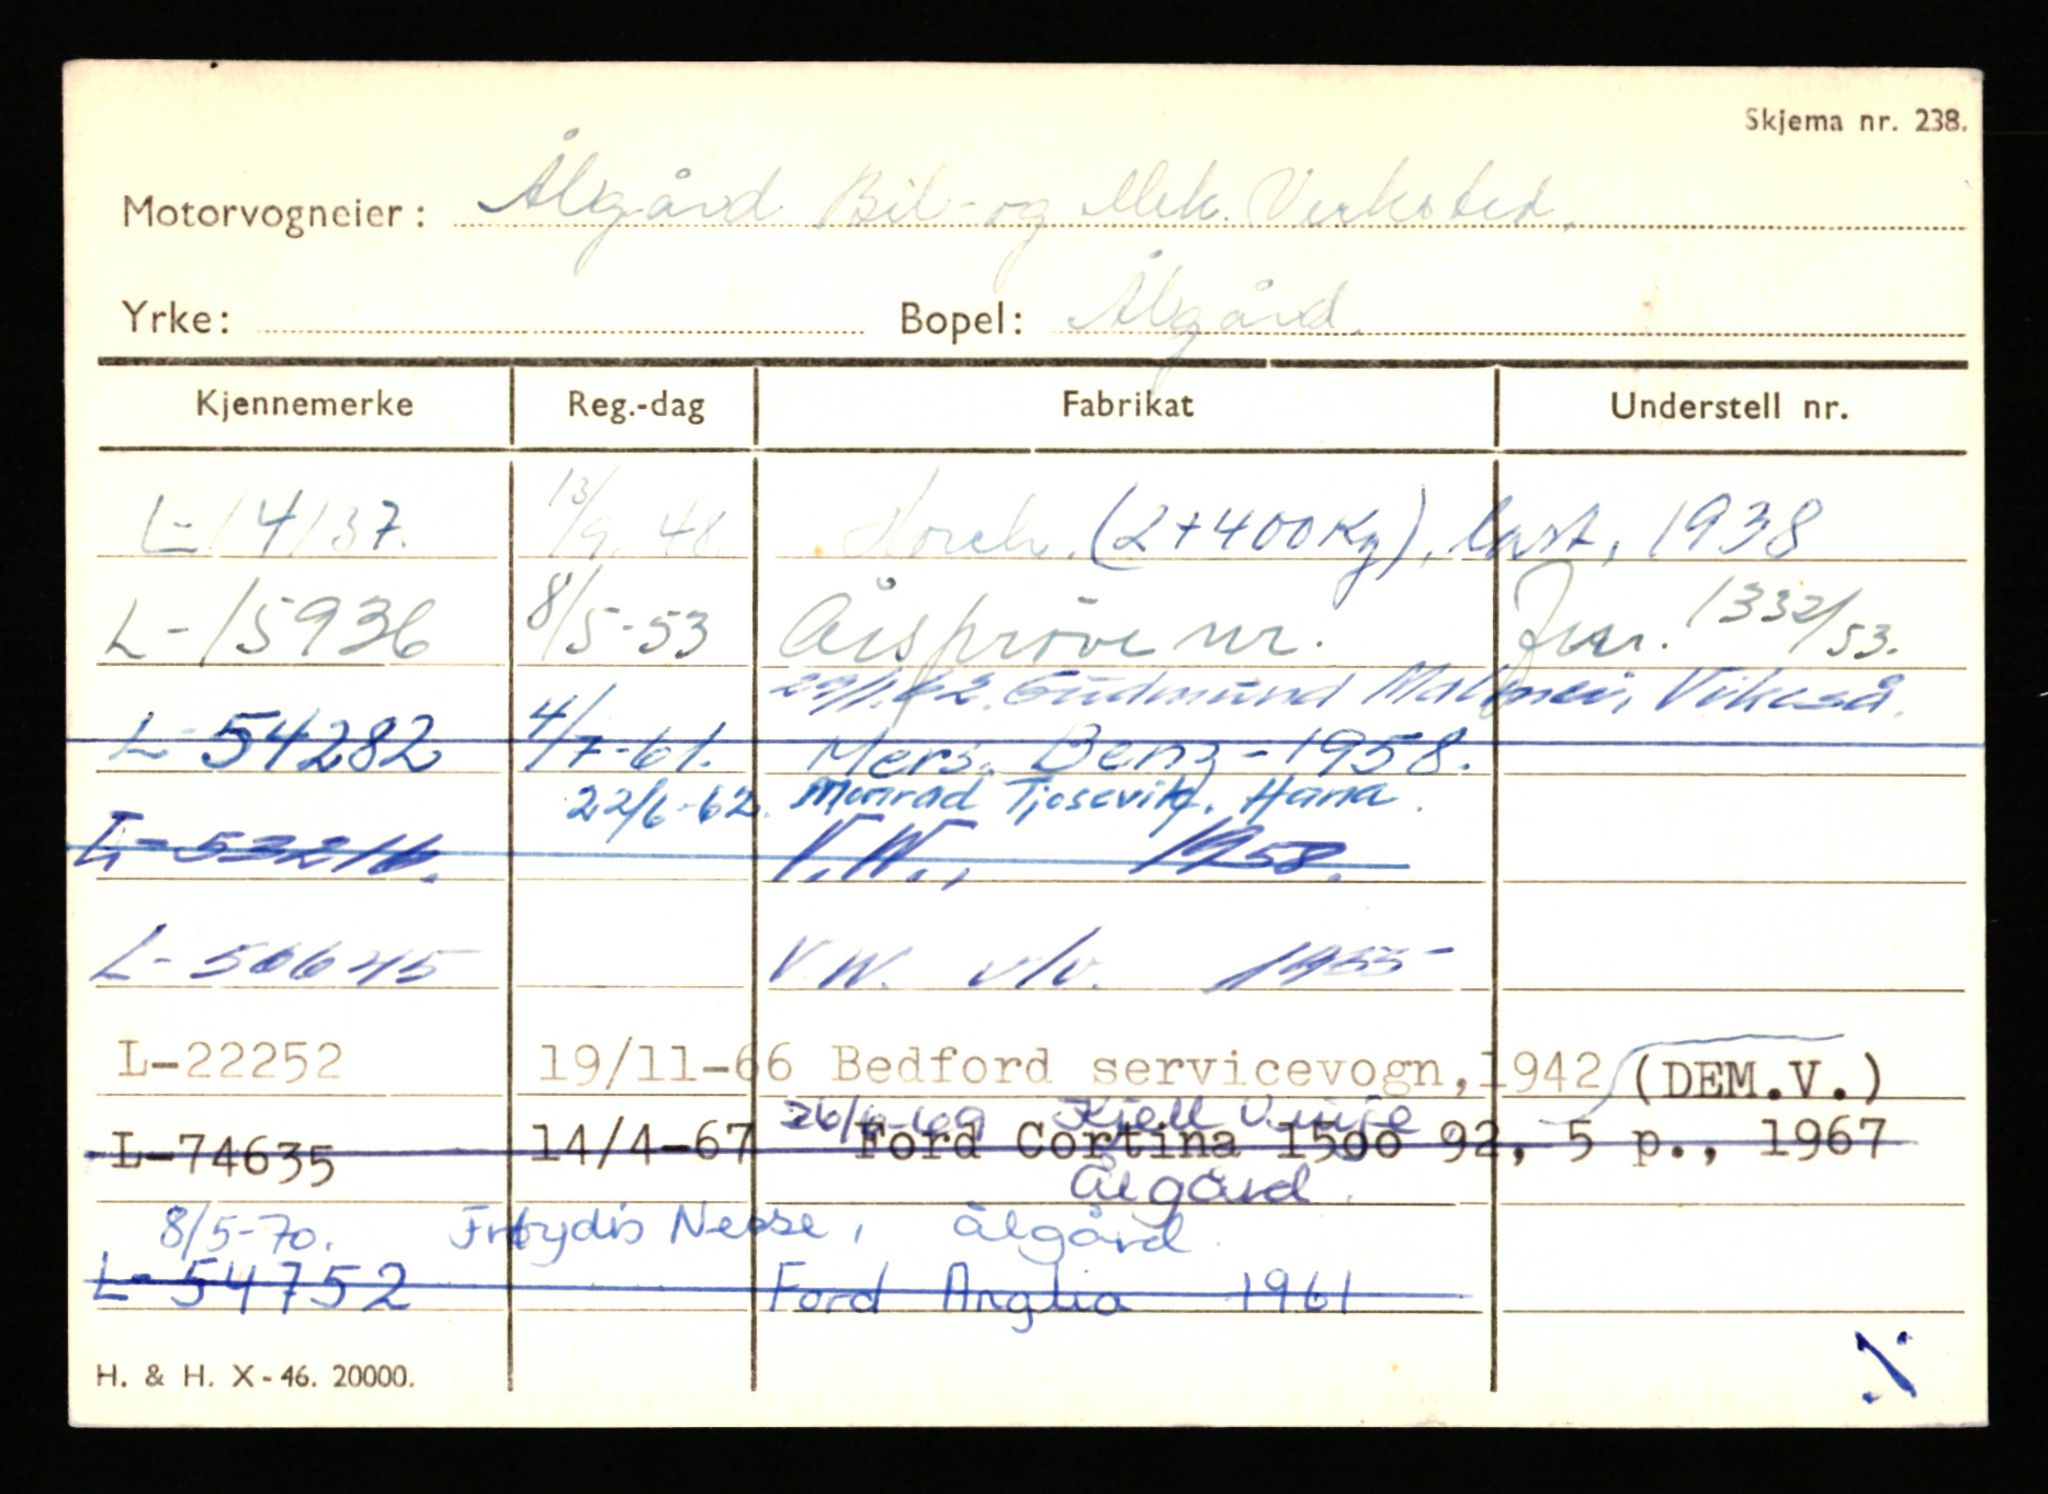 Skjema nr. 238.
Motorvogneier: Ålgård Bil- og Mek. Verksted.
Yrke: Bopel: Ålgård.
Kjennemerke Reg.-dag Fabrikat Understell nr.
L-14137. 13/9.48. Horch. (2+400 kg), last, 1938
L-15936 8/5-53 Årsprøve nr. Jnr. 1332/53.
29/1.62. Gudmund Malmei, Vikeså.
L-54282 4/7-61. Mers. Benz-1958.
22/6-62. Monrad Tjosevik, Hana.
L-53216. V.W., 1958.
L-56645 V.W. v/v. 1955
L-22252 19/11-66 Bedford servicevogn, 1942 (DEM.V.)
26/6-69 Kjell
L-74635 14/4-67 Ford Cortina 1500 92, 5 p., 1967
Ålgård.
8/5-70. Frøydis Nesse, Ålgård.
L-54752 Ford Anglia 1961
H. & H. X-46. 20000.